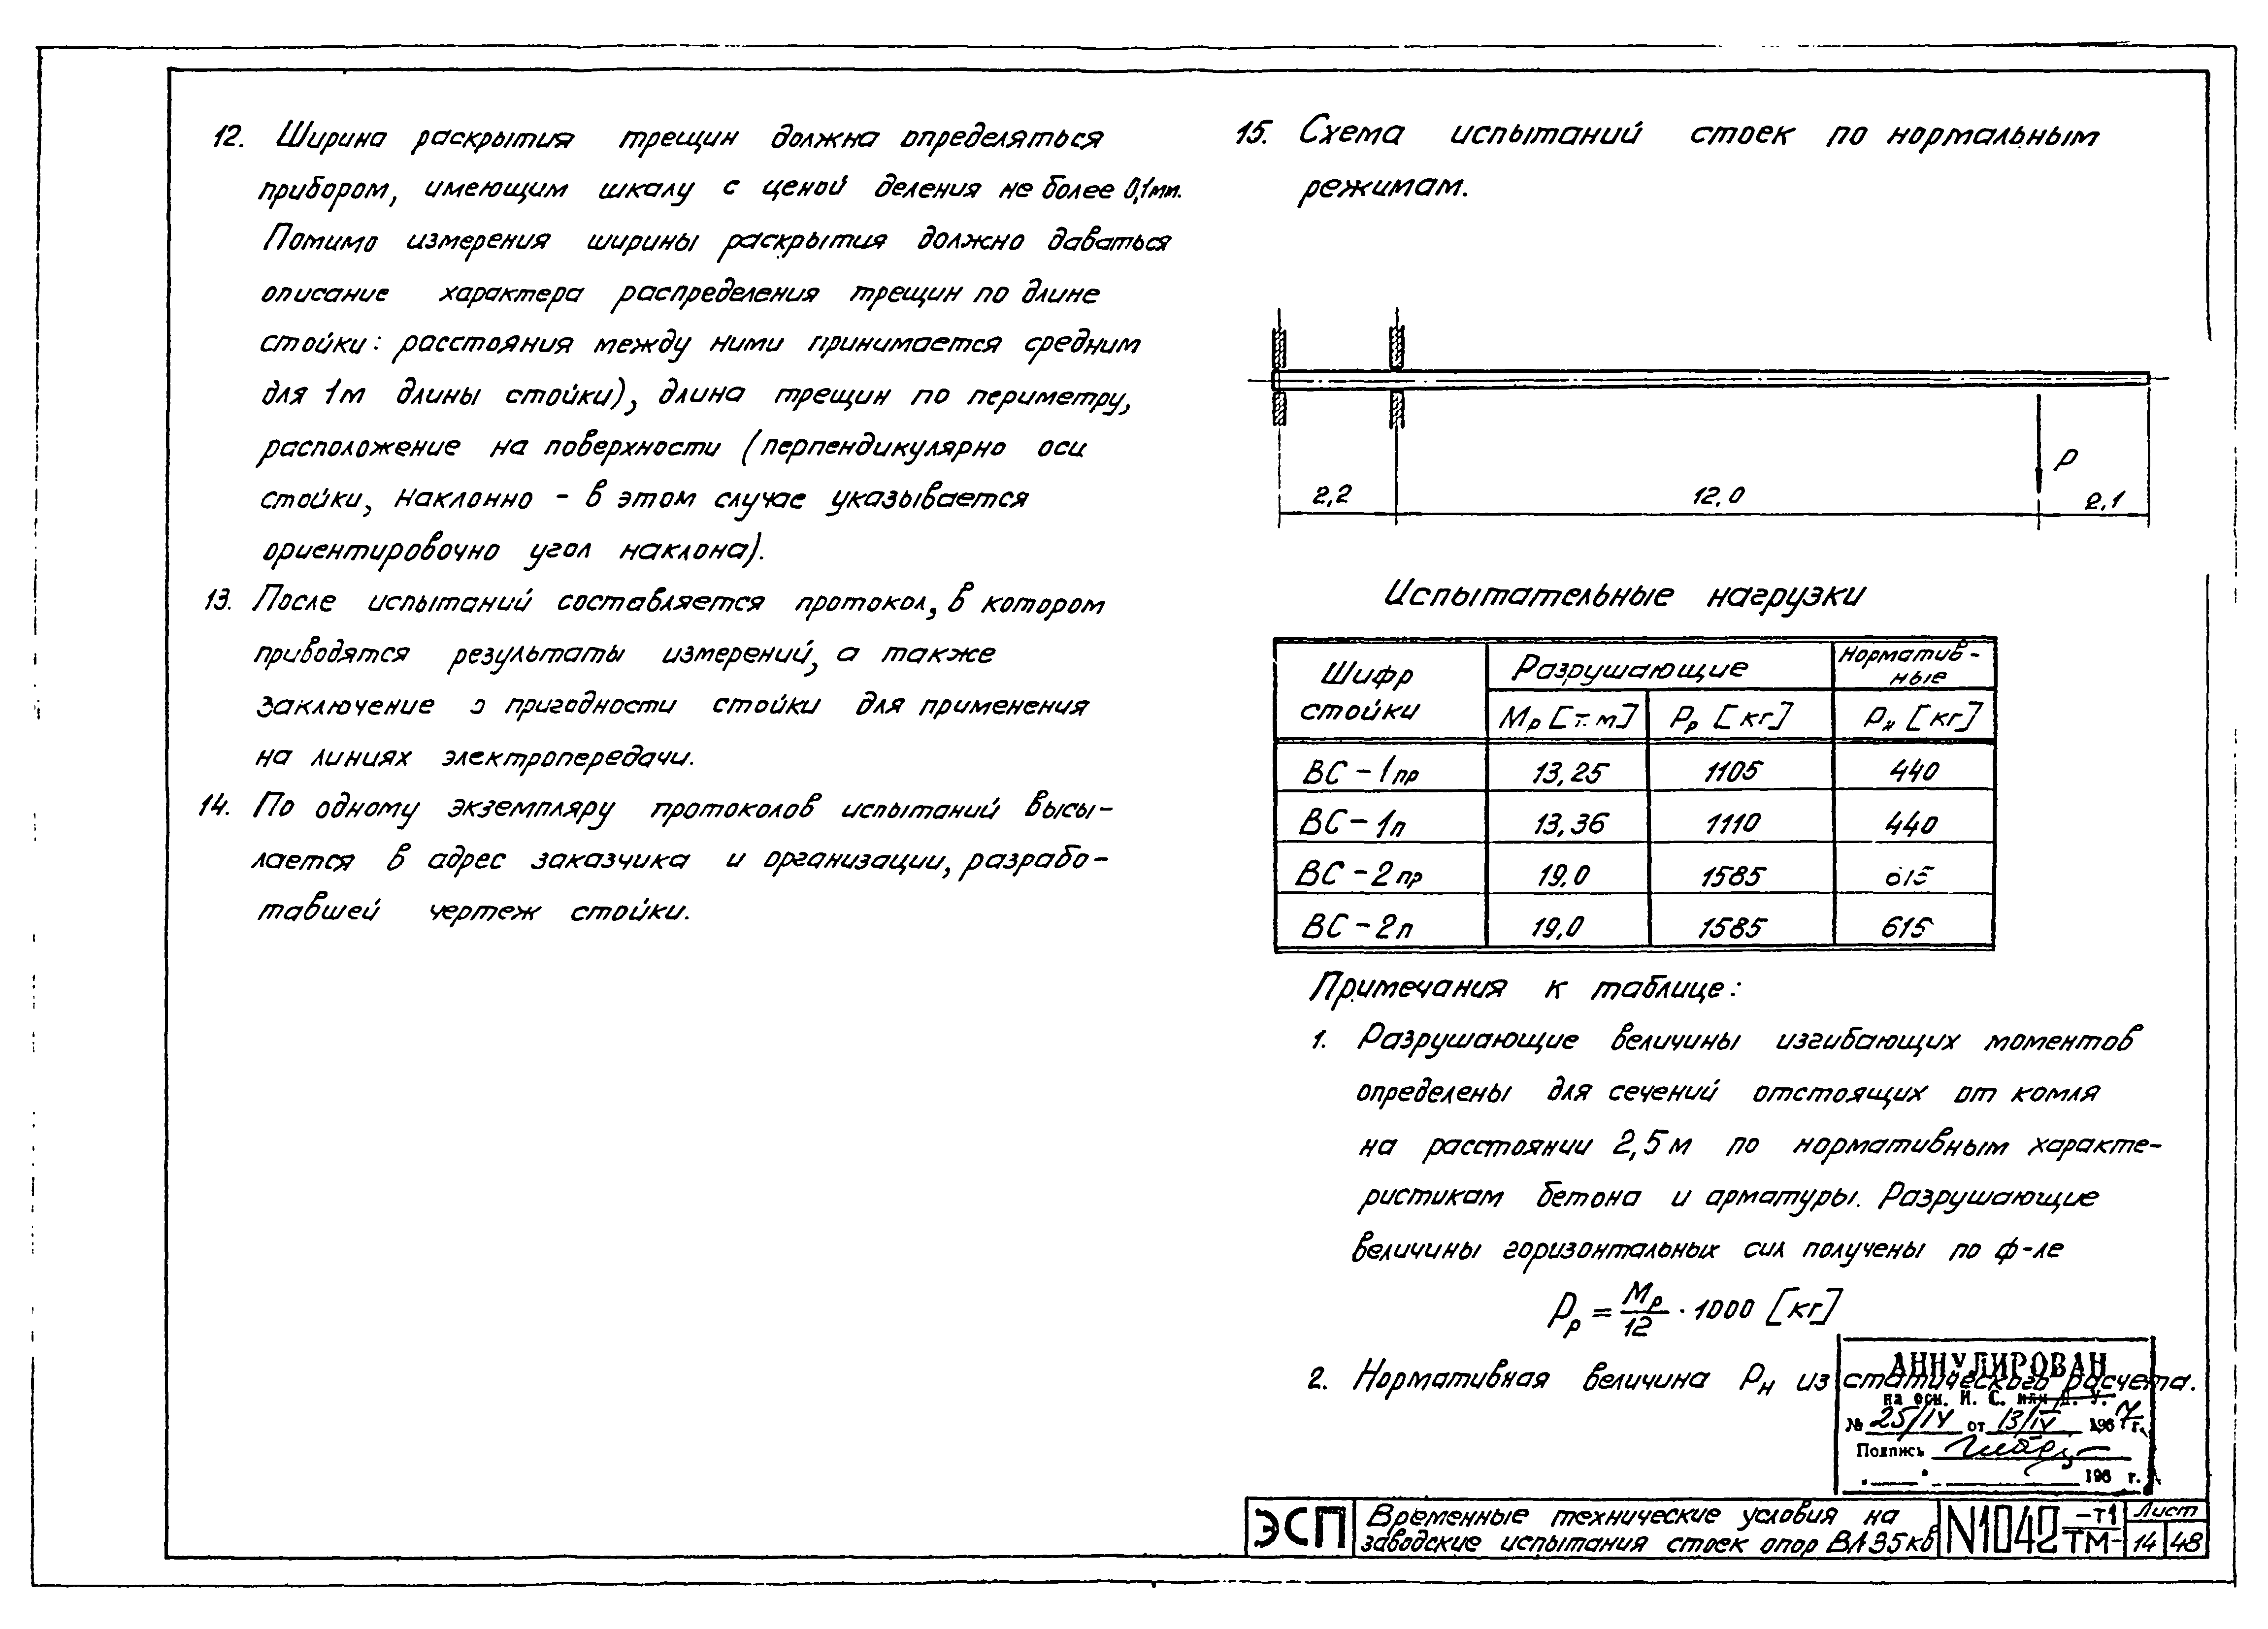 12. Ширина раскрытия трещин должна определяться
прибором, имеющим шкалу с ценой деления не более 0,1мм.
Помимо измерения ширины раскрытия должно даваться
описание характера распределения трещин по длине
стойки: расстояния между ними принимается средним
для 1м длины стойки), длина трещин по периметру,
расположение на поверхности (перпендикулярно оси
стойки, наклонно - в этом случае указывается
ориентировочно угол наклона).
13. После испытаний составляется протокол, в котором
приводятся результаты измерений, а также
заключение о пригодности стойки для применения
на линиях электропередачи.
14. По одному экземпляру протоколов испытаний высы-
лается в адрес заказчика и организации, разрабо-
тавшей чертеж стойки.
15. Схема испытаний стоек по нормальным
режимам.
P
2,2 12,0 2,1
Испытательные нагрузки
Шифр стойки Разрушающие Норматив-
ные
Mр [т.м] Pр [кг] Pн [кг]
ВС-1пр 13,25 1105 440
ВС-1п 13,36 1110 440
ВС-2пр 19,0 1585 615
ВС-2п 19,0 1585 615
Примечания к таблице:
1. Разрушающие величины изгибающих моментов
определены для сечений отстоящих от комля
на расстоянии 2,5м по нормативным характе-
ристикам бетона и арматуры. Разрушающие
величины горизонтальных сил получены по ф-ле
Pр = Mр/12 · 1000 [кг]
2. Нормативная величина Pн из статического расчета.
АННУЛИРОВАН
на осн. И. С. или Д. У.
№ 25/IV от 13/IV 1967 г.
Подпись
196 г.
ЭСП Временные технические условия на
заводские испытания стоек опор ВЛ 35кв
N1042 -т1
ТМ-
Лист
14 48